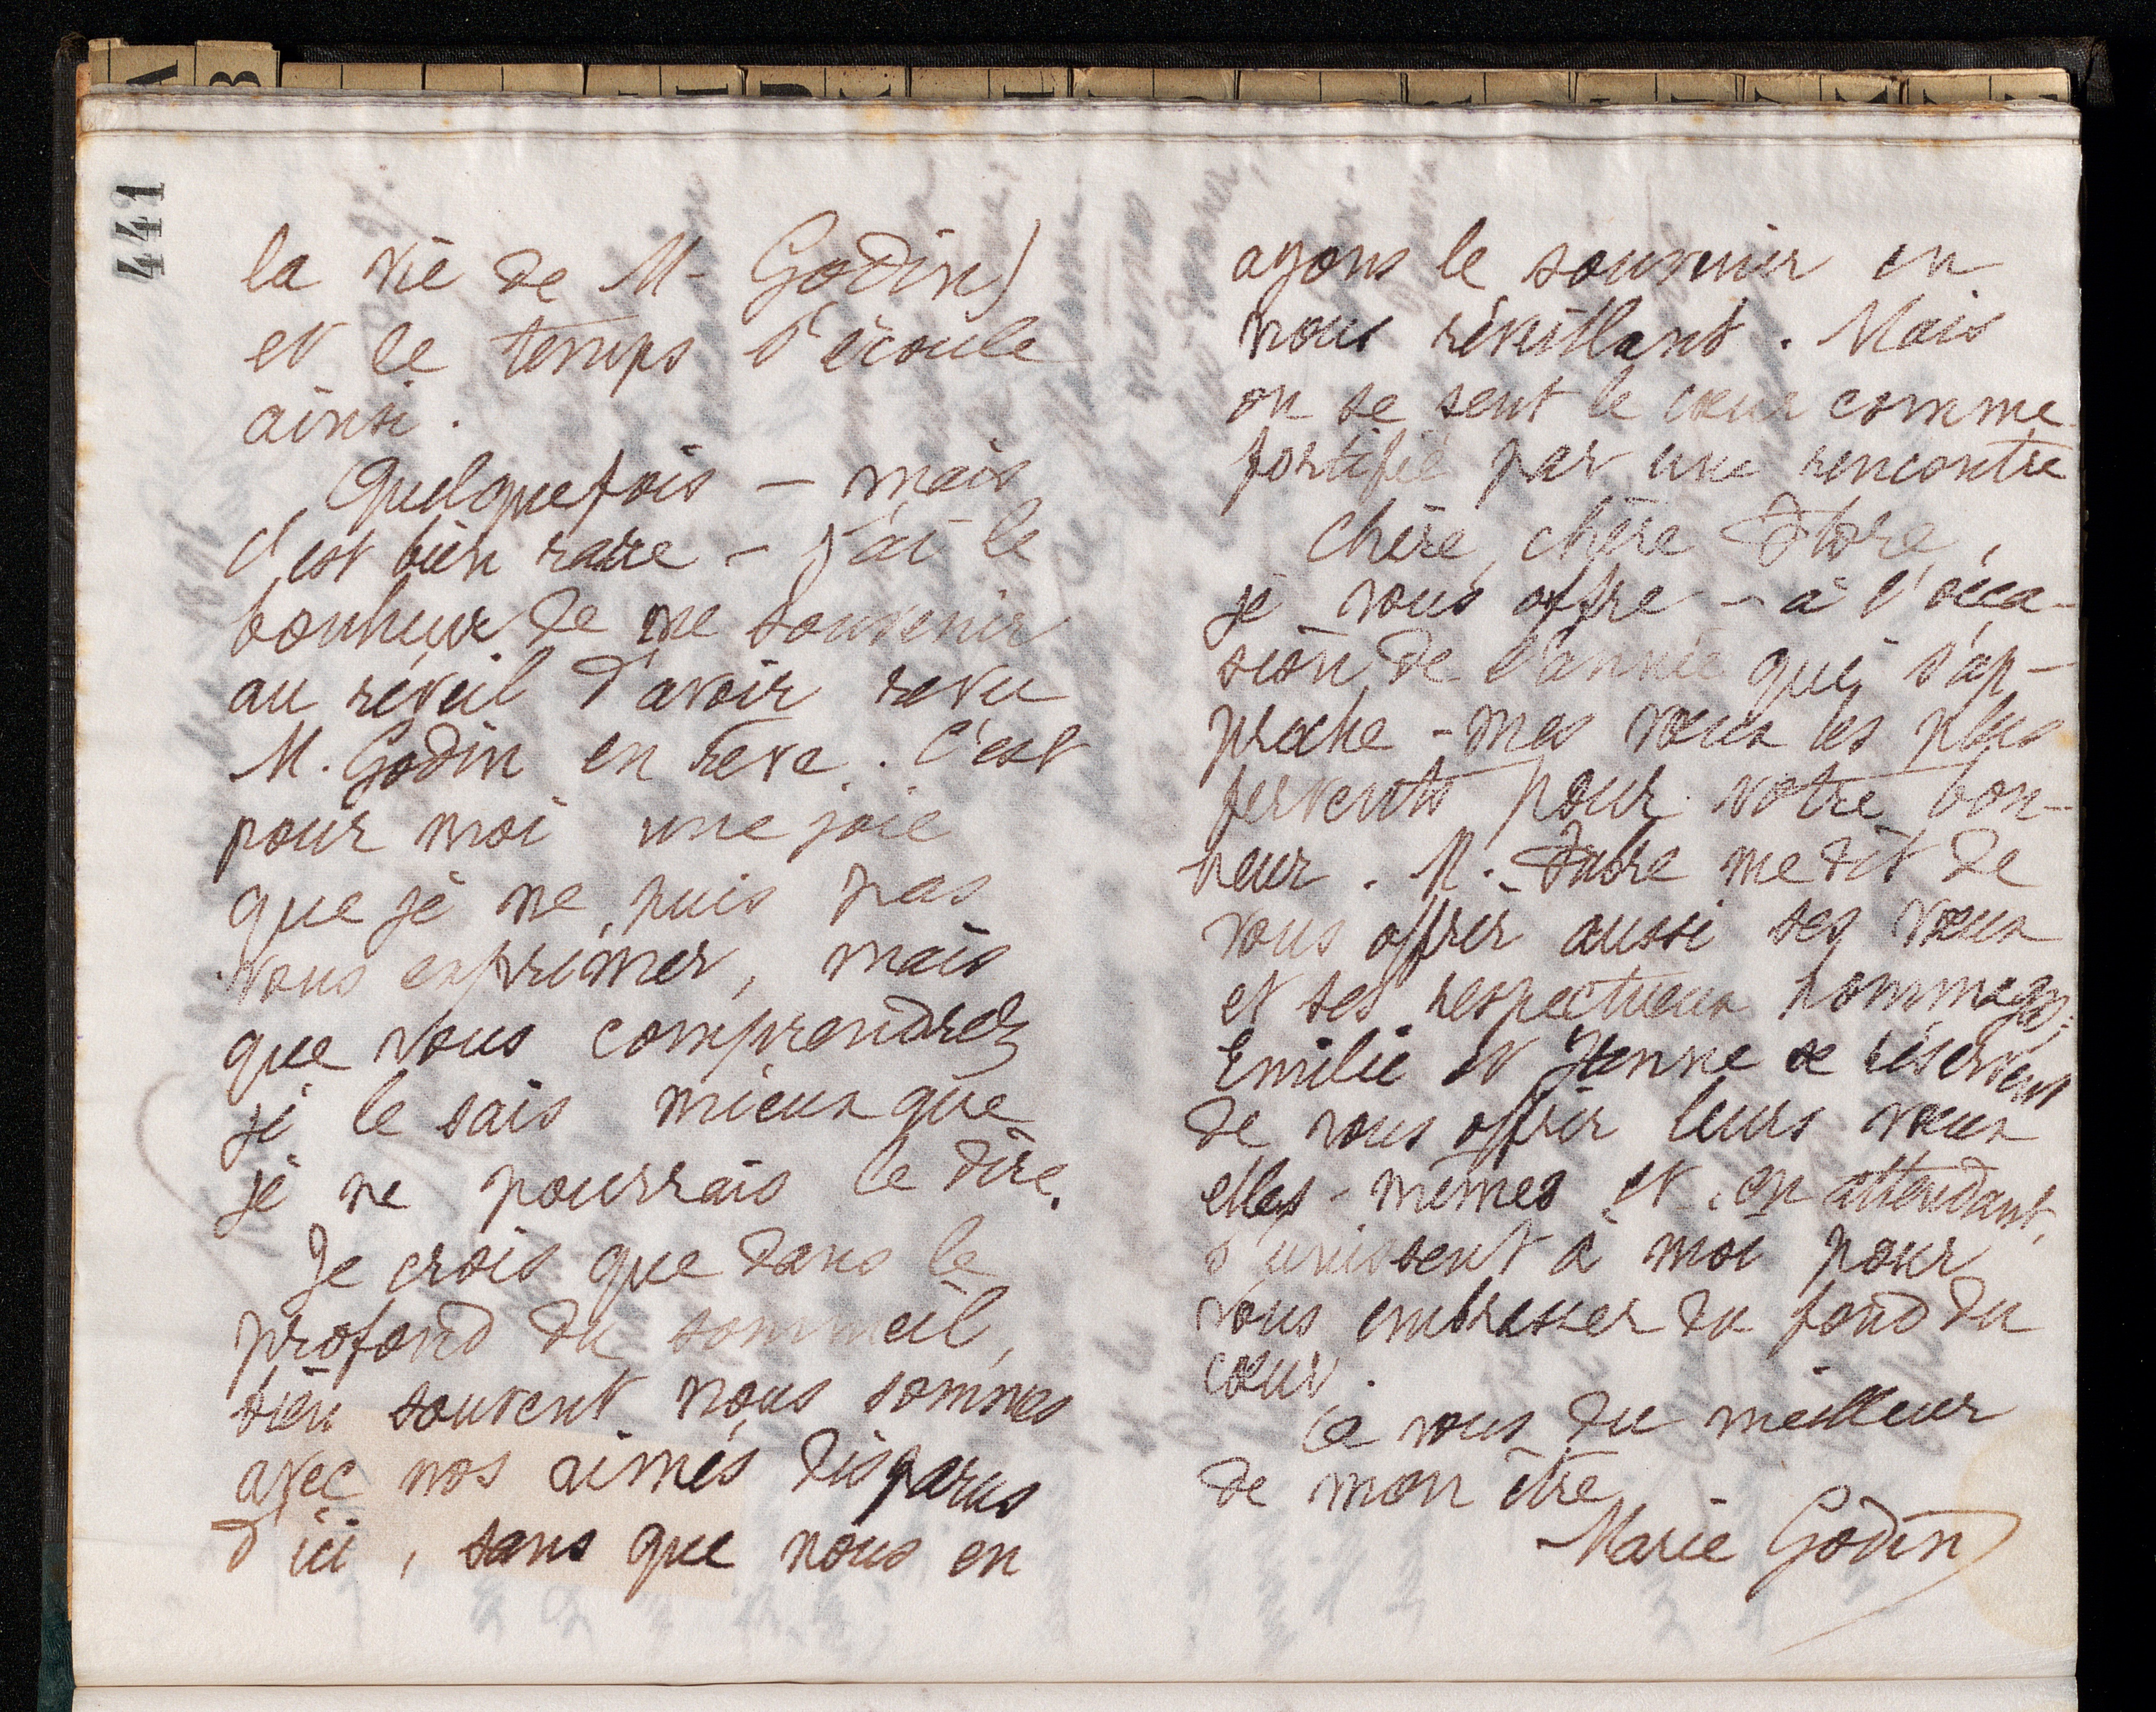 441
la vie de M. Godin)
et le temps s'écoule
ainsi.
Quelquefois – mais
c'est bien rare – j'ai le
bonheur de me souvenir
au réveil d'avoir revu
M. Godin en rêve. C'est
pour moi une joie
que je ne puis pas
vous exprimer, mais
que vous comprendrez
je le sais mieux que
je ne pourrais le dire.
Je crois que dans le
profond du sommeil,
bien souvent nous sommes
avec nos aimés disparus
d'ici, sans que nous en
ayons le souvenir en
nous réveillant. Mais
on se sent le cœur comme
fortifié par une rencontre
Chère, chère
je vous offre – à l'occa-
sion de l'année qui s'ap-
proche – mes vœux les plus
fervents pour votre bon-
heur. M. me dit de
vous offrir aussi ses vœux
et ses respectueux hommages;
Emilie et Jeanne se réservent
de vous offrir leurs vœux
elles-mêmes et, en attendant,
s'unissent à moi pour
vous embrasser du fond du
cœur.
à vous du meilleur
de mon être
Marie Godin